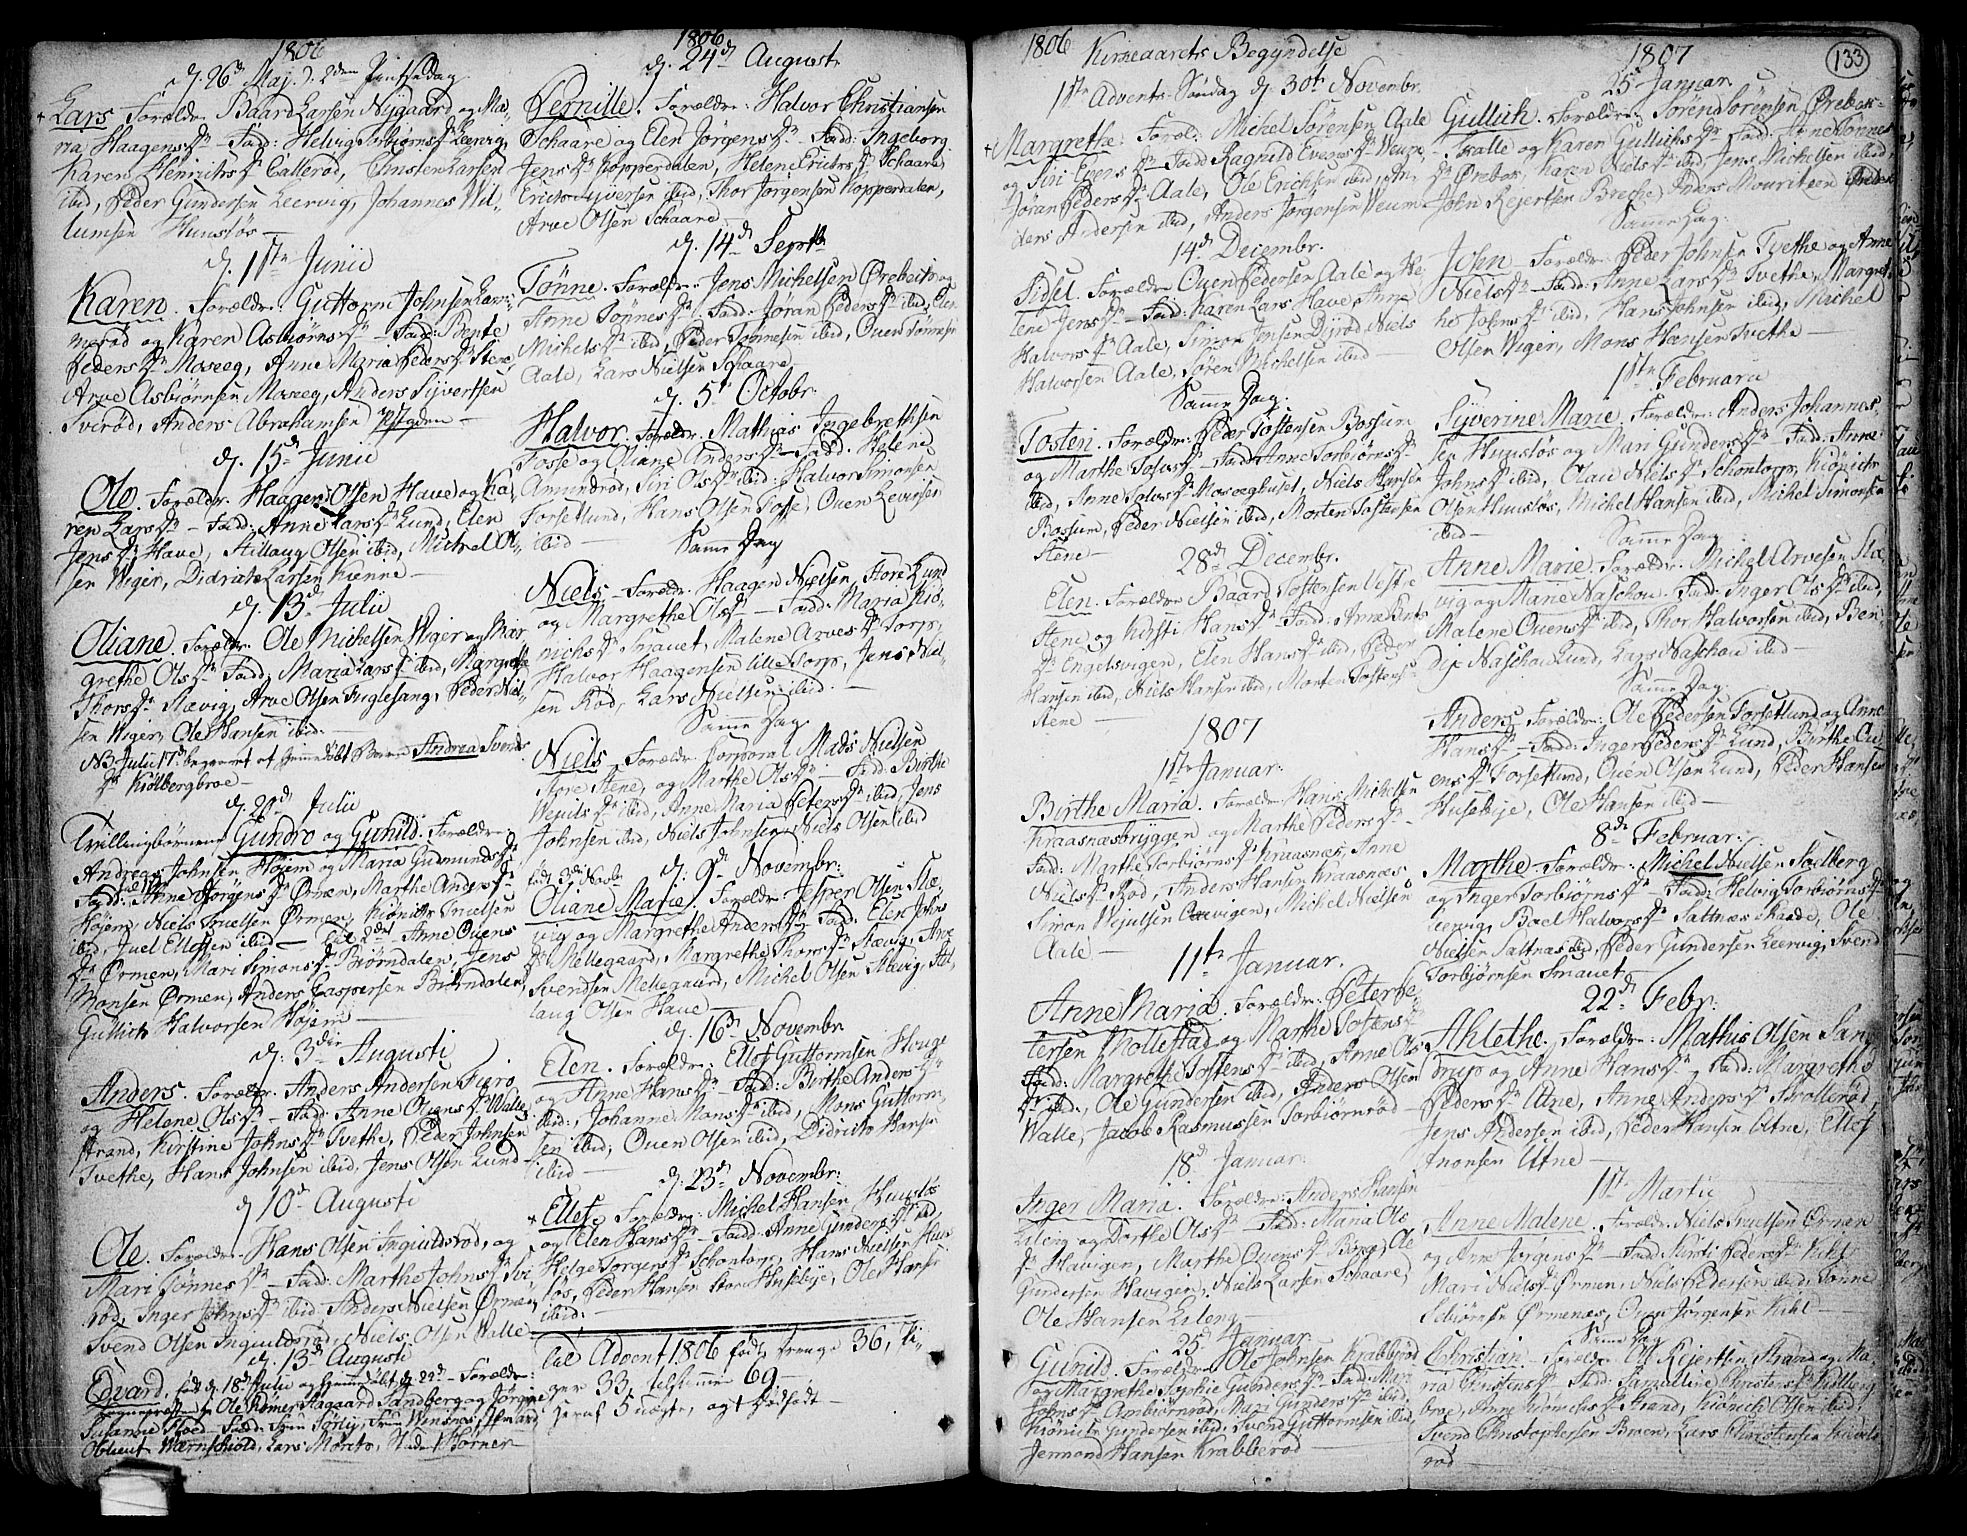 1806
d. 26de Maj. d. 2den Pintsedag
+ Lars. Forældre Baard Larsen Nygaard og Ma-
ria Haagensdr – Fadd: Helvig Torbiørnsdr Leervig,
Karen Henrichsdr Tallerød, Christen Larsen
ibid, Peder Gundersen Leervig, Johannes Wil-
lumsen Hunstøs —
d. 1ste Junii
Karen. Forældre: Guttorm Johnsen
merød og Karen Asbiørnsdr – Fadd: Bente
Pedersdr Moseeg, Anne Maria Pedersdr Stene,
Arve Asbiørnsen Moseeg, Anders Syvertsen
Svirød, Anders Abrahamsen
d. 15de Junii
Ole. Forældre: Haagen Olsen Have og Ka-
ren Larsdr – Fadd: Anne Larsdr Lund, Elen
Jensdr Have, Stillaug Olsen ibid, Michel Ol-
sen Wiger, Didrich Larsen Kiønne —
d. 13de Julii
Oliane. Forældre Ole Michelsen Wiger og Mar-
grethe Olsdr Fadd: Maria Larsdr ibid, Margrethe
Thorsdr Slævig, Arve Olsen Fuglesang, Peder Niel-
sen Wiger, Ole Hansen ibid —
NB Julii 17de begravet et hiemmedøbt Barn Andrea Svends-
dr Kiølbergbroe —
d. 20de Julii
Tvillingbørnene Gundro og Gunild. Forældre
Andreas Johnsen Højem og Maria Gudmundsdr
Fadd: Anne Jørgensdr Ørmen, Marthe Andersdr
Højem, Niels Truelsen Ørmen, Kiønich Truelsen
ibid, Juel Ellefsen ibid — Til 2det Anne Ouens
dr Ørmen, Mari Simonsdr Biørndalen, Jens
Monsen Ørmen, Anders Caspersen Biørndalen,
Gullich Halvorsen Højem —
d. 3die Augusti
Anders. Forældr: Anders Andersen Fuirø
og Helene Olsdr – Fadd: Anne Olsdr Walle,
strand, Kirstine Johnsdr Tvethe, Peder Johnsen
Tvethe, Hans Johnsen ibid, Jens Olsen Lund —
d. 10de Augusti
Ole. Forældre: Hans Olsen Inguldsrød, og
Mari Tønnesdr – Fadd: Marthe Johnsdr Svi-
rød, Inger Johnsdr ibid Anders Nielsen Ørmen,
Svend Olsen Inguldsrød, Niels Olsen Walle
d. 13de Augusti
Edvard, født d. 18de Julii og hiemmedøbt d. 22de – Forældre
Sogneprest Ole Rømer Aagaard Sandberg og Jørgine
Susanne Floed Fadd:
Oblieut Wærnschiold, Lars Morito, Stud: Hørner —
1806
d. 24de August
Pernille. Forældre: Halvor Christiansen
Schaare og Elen Jørgensdr – Fadd: Ingeborg
Jensdr Kopperdalen, Helene Erichsdr Schaare
Erich Syversen ibid, Thor Jørgensen Kopperdalen,
Arve Olsen Schaare
d. 14de Septbr
Tønne. Forældr: Jens Michelsen Ørebech og
Anne Tønnesdr – Fadd: Jøran Pedersdr ibid, Elen
Michelsdr ibid, Peder Tønnesen ibid, Ouen Tønnesen
Aale, Lars Nielsen Schaare
d. 5te Octobr
Halvor. Forældr: Mathias Ingebrethsen
Fosse og Oliane Andersdr – Fadd: Helene
Amundrød, Siri Olsdr ibid: Halvor Simonsen
Forsetlund, Hans Olsen Fosse, Ouen Levinsen
ibid —
Samme Dag
Niels. Forældr: Haagen Nielsen, Store Lund
og Margrethe Olsdr – Fadd: Maria Kiø-
nichsdr Smauet, Malene Arvesdr Torp,
Halvor Haagensen lille Torp, Jens Niel-
sen Rød, Lars Nielsen ibid. —
Samme Dag
Niels. Forældre Corporal Mads Nielsen
Store Stene, og Marthe Olsdr – Fadd: Birthe
Wepilsdr ibid, Anne Maria Petersdr ibid Jens
Johnsen ibid, Niels Johnsen, Niels Olsen ibid
født 3de Novbr d. 9de Novembr:
Oliane Marie. Forældr: Jesper Olsen Slæ-
vig og Margrethe Andersdr Fadd: Elen Johns
dr Mellegaard, Margrethe Thorsdr Slævig, Arve
Svendsen Mellegaard, Michel Olsen Slævig, Stil-
laug Olsen Have —
d. 16de Novembr
Elen. Forældre: Ellef Guttormsen Houge
og Anne Hansdr – Fadd: Birthe Andersdr
ibid:, Johanne Monsdr ibid, Mons Guttorm-
sen ibid, Ouen Olsen ibid, Didrich Hansen
ibid —
d. 23de Novembr:
+ Ellef. Forældre: Michel Hansen Hunstøs
og Elen Hansdr – Fadd: Anne Gundersdr ibid
Helge Torgersdr Schontorp, Hans Nielsen Huns-
tøs, Peder Hansen store Husebye, Ole Hansen
ibid:
Til Advent 1806 født drenge 36, Pi-
ger 33, tilsammen 69 —
heraf 5 uægte, og 1 dødfødt —
1806 Kirkeaarets Begyndelse
1ste Advents Søndag d. 30te Novembr.
+ Margrethe. Foræl: Michel Sørensen Aale
og Siri Evensdr – Fadd Ragnild Evensdr Veum,
Jøran Pedersdr Aale, Ole Erichsen ibid, An-
ders Andersen ibid, Anders Jørgensen Veum
14de Decembr.
Sidsel. Forældre Ouen Pedersen Aale og He-
lene Jensdr – Fadd: Karen Lars Have, Anne
Halvorsdr Aale, Simon Jensen Dyrød, Niels
Halvorsen Aale, Søren Michelsen ibid —
Samme Dag.
Tosten. Forældre: Peder Tostensen Bossum
og Marthe Tolvsdr – Fadd: Anne Torbiørnsdr
ibid, Anne Tolvsdr Moseeghuset, Niels Hansen
Bossum, Peder Nielsen ibid, Morten Tostensen
Stene —
28de Decembr.
Elen. Forældre Baard Tostensen Vestre
Stene og Kirsti Hansdr – Fadd: Anne Bents
dr Engelsvigen, Elen Hansdr ibid, Peder
Hansen ibid, Niels Hansen ibid, Morten Tostensen
Stene —
1807
1ste Januar.
Birthe Maria. Forældre Hans Michelsen
Kraasnæsbryggen og Marthe Pedersdr –
Fadd: Marthe Torbiørnsdr Kraasnæs, Anne
Nielsdr Rød, Anders Hansen Kraasnæs
Simon Wejulsen Aavigen, Michel Nielsen
Aale —
11te Januar.
Anne Maria. Forældre: Peter Pe-
tersen Mollestad og Marthe Tostensdr
Fadd: Margrethe Tostensdr ibid, Anne Ols
dr ibid:, Ole Gundersen ibid, Anders Olsen
Walle, Jacob Rasmussen Torbiørnrød —
18de Januar:
Inger Maria. Forældre: Anders Hansen
Lileng og Dorthe Olsdr – Fadd: Maria Ols
dr Havigen, Marthe Ouensdr Borge, Ole
Gundersen Havigen, Niels Larsen Schaare,
Ole Hansen Lileng —
25de Januar
Gunild. Forældre Ole Johnsen Krabberød
og Margrethe Sophie Gundersdr – Fadd: Mari
Johnsdr Ambiørnrød, Mari Gundersdr ibid,
Kiønich Gundersen ibid, Svend Guttormsen ibid,
Jermond Hansen Krabberød
1807
133
25de Januar
Gullich. Forældre: Søren Sørensen Ørebek-
Tralle og Karen Gullichsdr Fadd: Anne Tønnes
dr Ørebek, Karen Nielsdr ibid, Jens Michelsen ibid,
John Rejertsen Brethe, Anders Mouritsen Ørebek
Samme Dag.
John. Forældre: Peder Johnsen Tvethe og Anne
Nielsdr – Fadd: Anne Larsdr Tvethe, Margret-
he Johnsdr ibid, Hans Johnsen ibid, Michel
Olsen Wiger, Mons Hansen Tvethe —
1ste Februarii
Syverine Marie. Forældre: Anders Johannes-
sen Hunstøs og Mari Gundersdr – Fadd: Anne
Johnsdr ibid, Olau Nielsdr Schontorp, Kiønich
Olsen Hunstøs, Michel Hansen ibid, Michel Simonsen
ibid —
Samme Dag.
Anne Marie. Forældre: Michel Arvesen Slæ-
vig og Marie Naschou. Fadd: Inger Olsdr ibid,
Malene Ouensdr ibid, Thor Halvorsen ibid, Ben-
dix Naschou Lund, Lars Naschou ibid —
Samme Dag.
Anders. Forældre: Ole Pedersen Forsetlund og Anne
Hansdr – Fadd: Inger Pedersdr Lund, Birthe Ou-
ensdr Forsetlund, Ouen Olsen Lund, Peder Hansen
Husebye, Ole Hansen ibid —
8de Februar:
Marthe. Forældre: Michel Nielsen Soelberg
og Inger Torbiørnsdr – Fadd: Helvig Torbiørnsdr
Leervig, Boel Halvorsdr Saltnæs skaade, Ole
Nielsen Saltnæs ibid, Peder Gundersen Leervig, Svend
Torbiørnsen Smauet —
22de Febr:
Ahlethe. Forældre: Mathis Olsen San-
drup og Anne Hansdr, Fadd: Margrethe
Pedersdr Utne, Anne Andersdr Brollerød,
Jens Andersen ibid, Peder Hansen Utne, Ellef
Jnonsen Utne —
1ste Martii
Anne Malene. Forældr: Niels Truelsen Ørmen
og Anne Jørgensdr – Fadd: Kirsti Pedersdr Kihl
Mari Nielsdr Ørmen, Niels Pedersen ibid, Tønne
Esbiørnsen Ørmenæs, Ouen Jørgensen Kihl —
Samme Dag
Christian. Forældr: Ole Rejertsen Strand og Ma-
ria Christensdr – Fadd: Samueline Christensdr Kiølberg
broe, Anne Kiønichsdr Strand, Kiønich Olsen ibid,
Svend Christophersen Broen, Lars Christensen
rød —